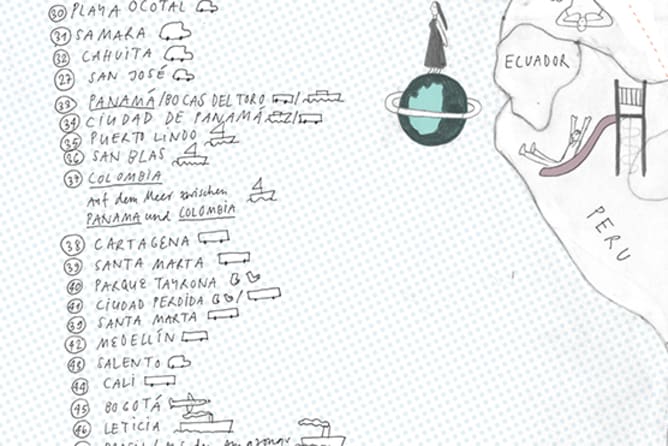 30 PLAYA OCOTAL
31 SAMARA
32 CAHUITA
27 SAN JOSÉ
33 PANAMÁ/BOCAS DEL TORO
34 CIUDAD DE PANAMÁ /
35 PUERTO LINDO
36 SAN BLAS
37 COLOMBIA
Auf dem Meer zwischen
PANAMA und COLOMBIA
38 CARTAGENA
39 SANTA MARTA
40 PARQUE TAYRONA
41 CIUDAD PERDIDA /
39 SANTA MARTA
42 MEDELLÍN
43 SALENTO
44 CALI
45 BOGOTÁ
46 LETICIA
ECUADOR
PERU